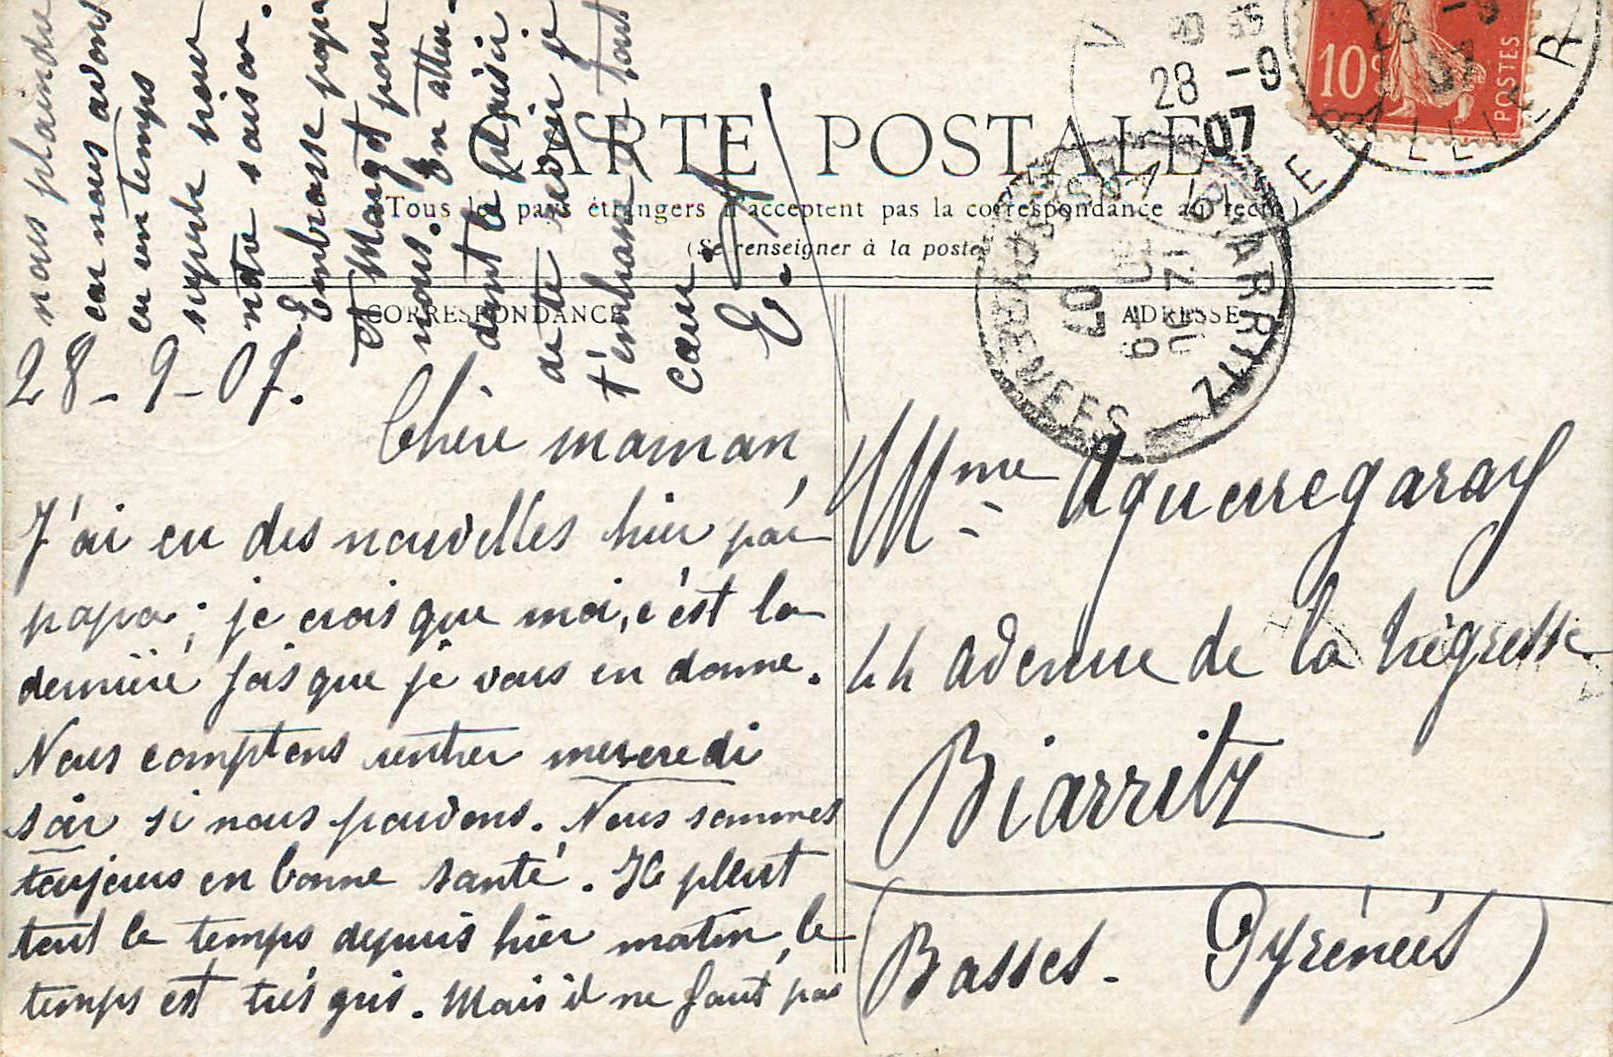 CARTE POSTALE
(Tous les pays étrangers n'acceptent pas la correspondance au recto)
(Se renseigner à la poste)
CORRESPONDANCE
ADRESSE
28-9-07.
Chère maman,
J'ai eu des nouvelles hier par
papa; je crois que moi, c'est la
dernière fois que je vous en donne.
Nous comptons rentrer mercredi
soir si nous pouvons. Nous sommes
toujours en bonne santé. Il pleut
tout le temps depuis hier matin, le
temps est très gris. Mais il ne faut pas
nous plaindre
car nous avons
eu un temps
superbe pour
notre saison.
Embrasse papa
et Margot pour
nous. En atten-
dant le plaisir
de te revoir je
t'embrasse de tout
cœur.
E.
Mme Aguerregaray
44 avenue de la Négresse
Biarritz
(Basses-Pyrénées)
10c
POSTES
28 -9
07
BIARRITZ
PYRENEES
07